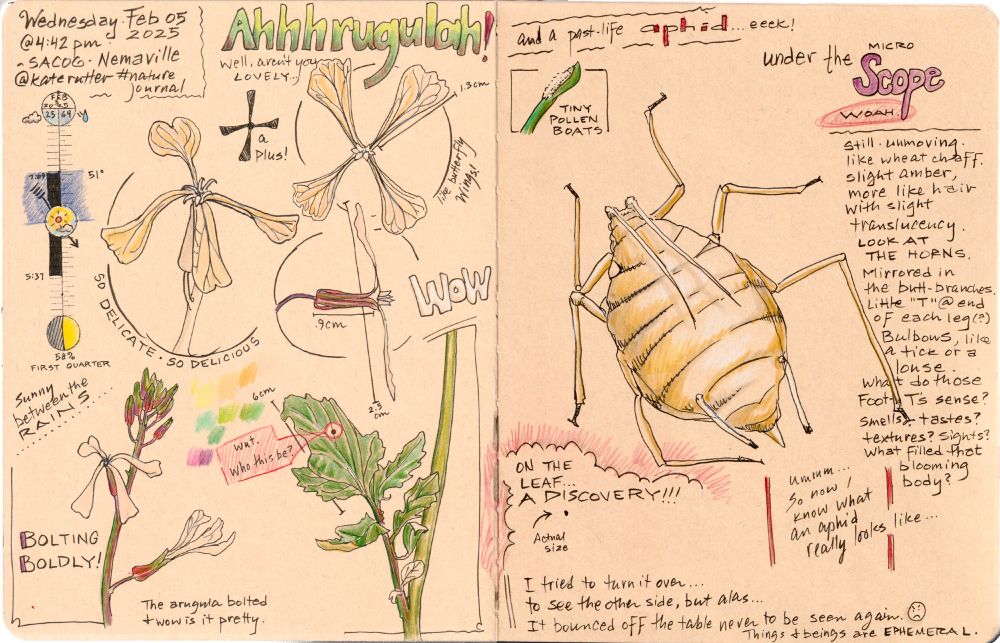 Wednesday Feb 05
2025
@4:42 pm
~ SACOG · Nemaville
@katerutter #nature
journal
Ahhhrugulah!
Well, aren't you
LOVELY...
1.3cm
a
Plus!
like butterfly
wings!
FEB
2025
7:09
51°
5:37
58%
FIRST QUARTER
SO DELICATE · SO DELICIOUS
.9cm
2.5
cm
WOW
Sunny
between the
RAINS...
6cm
Wut.
Who this be?
BOLTING
BOLDLY!
The arugula bolted
+ wow is it pretty.
and a past-life aphid...eeek!
TINY
POLLEN
BOATS
under the
MICRO
Scope
WOAH.
Still. unmoving.
like wheat chaff.
slight amber,
more like hair
with slight
translucency.
LOOK AT
THE HORNS.
Mirrored in
the butt-branches.
Little "T" @ end
of each leg(?)
Bulbous, like
a tick or a
louse.
What do those
Foot T's sense?
smells? tastes?
textures? Sights?
what filled that
blooming
body?
ON THE
LEAF...
A DISCOVERY!!!
Actual
size
ummm...
So now I
know what
an aphid
really looks like...
I tried to turn it over...
to see the other side, but alas...
It bounced off the table never to be seen again.
Things + beings are EPHEMERAL.